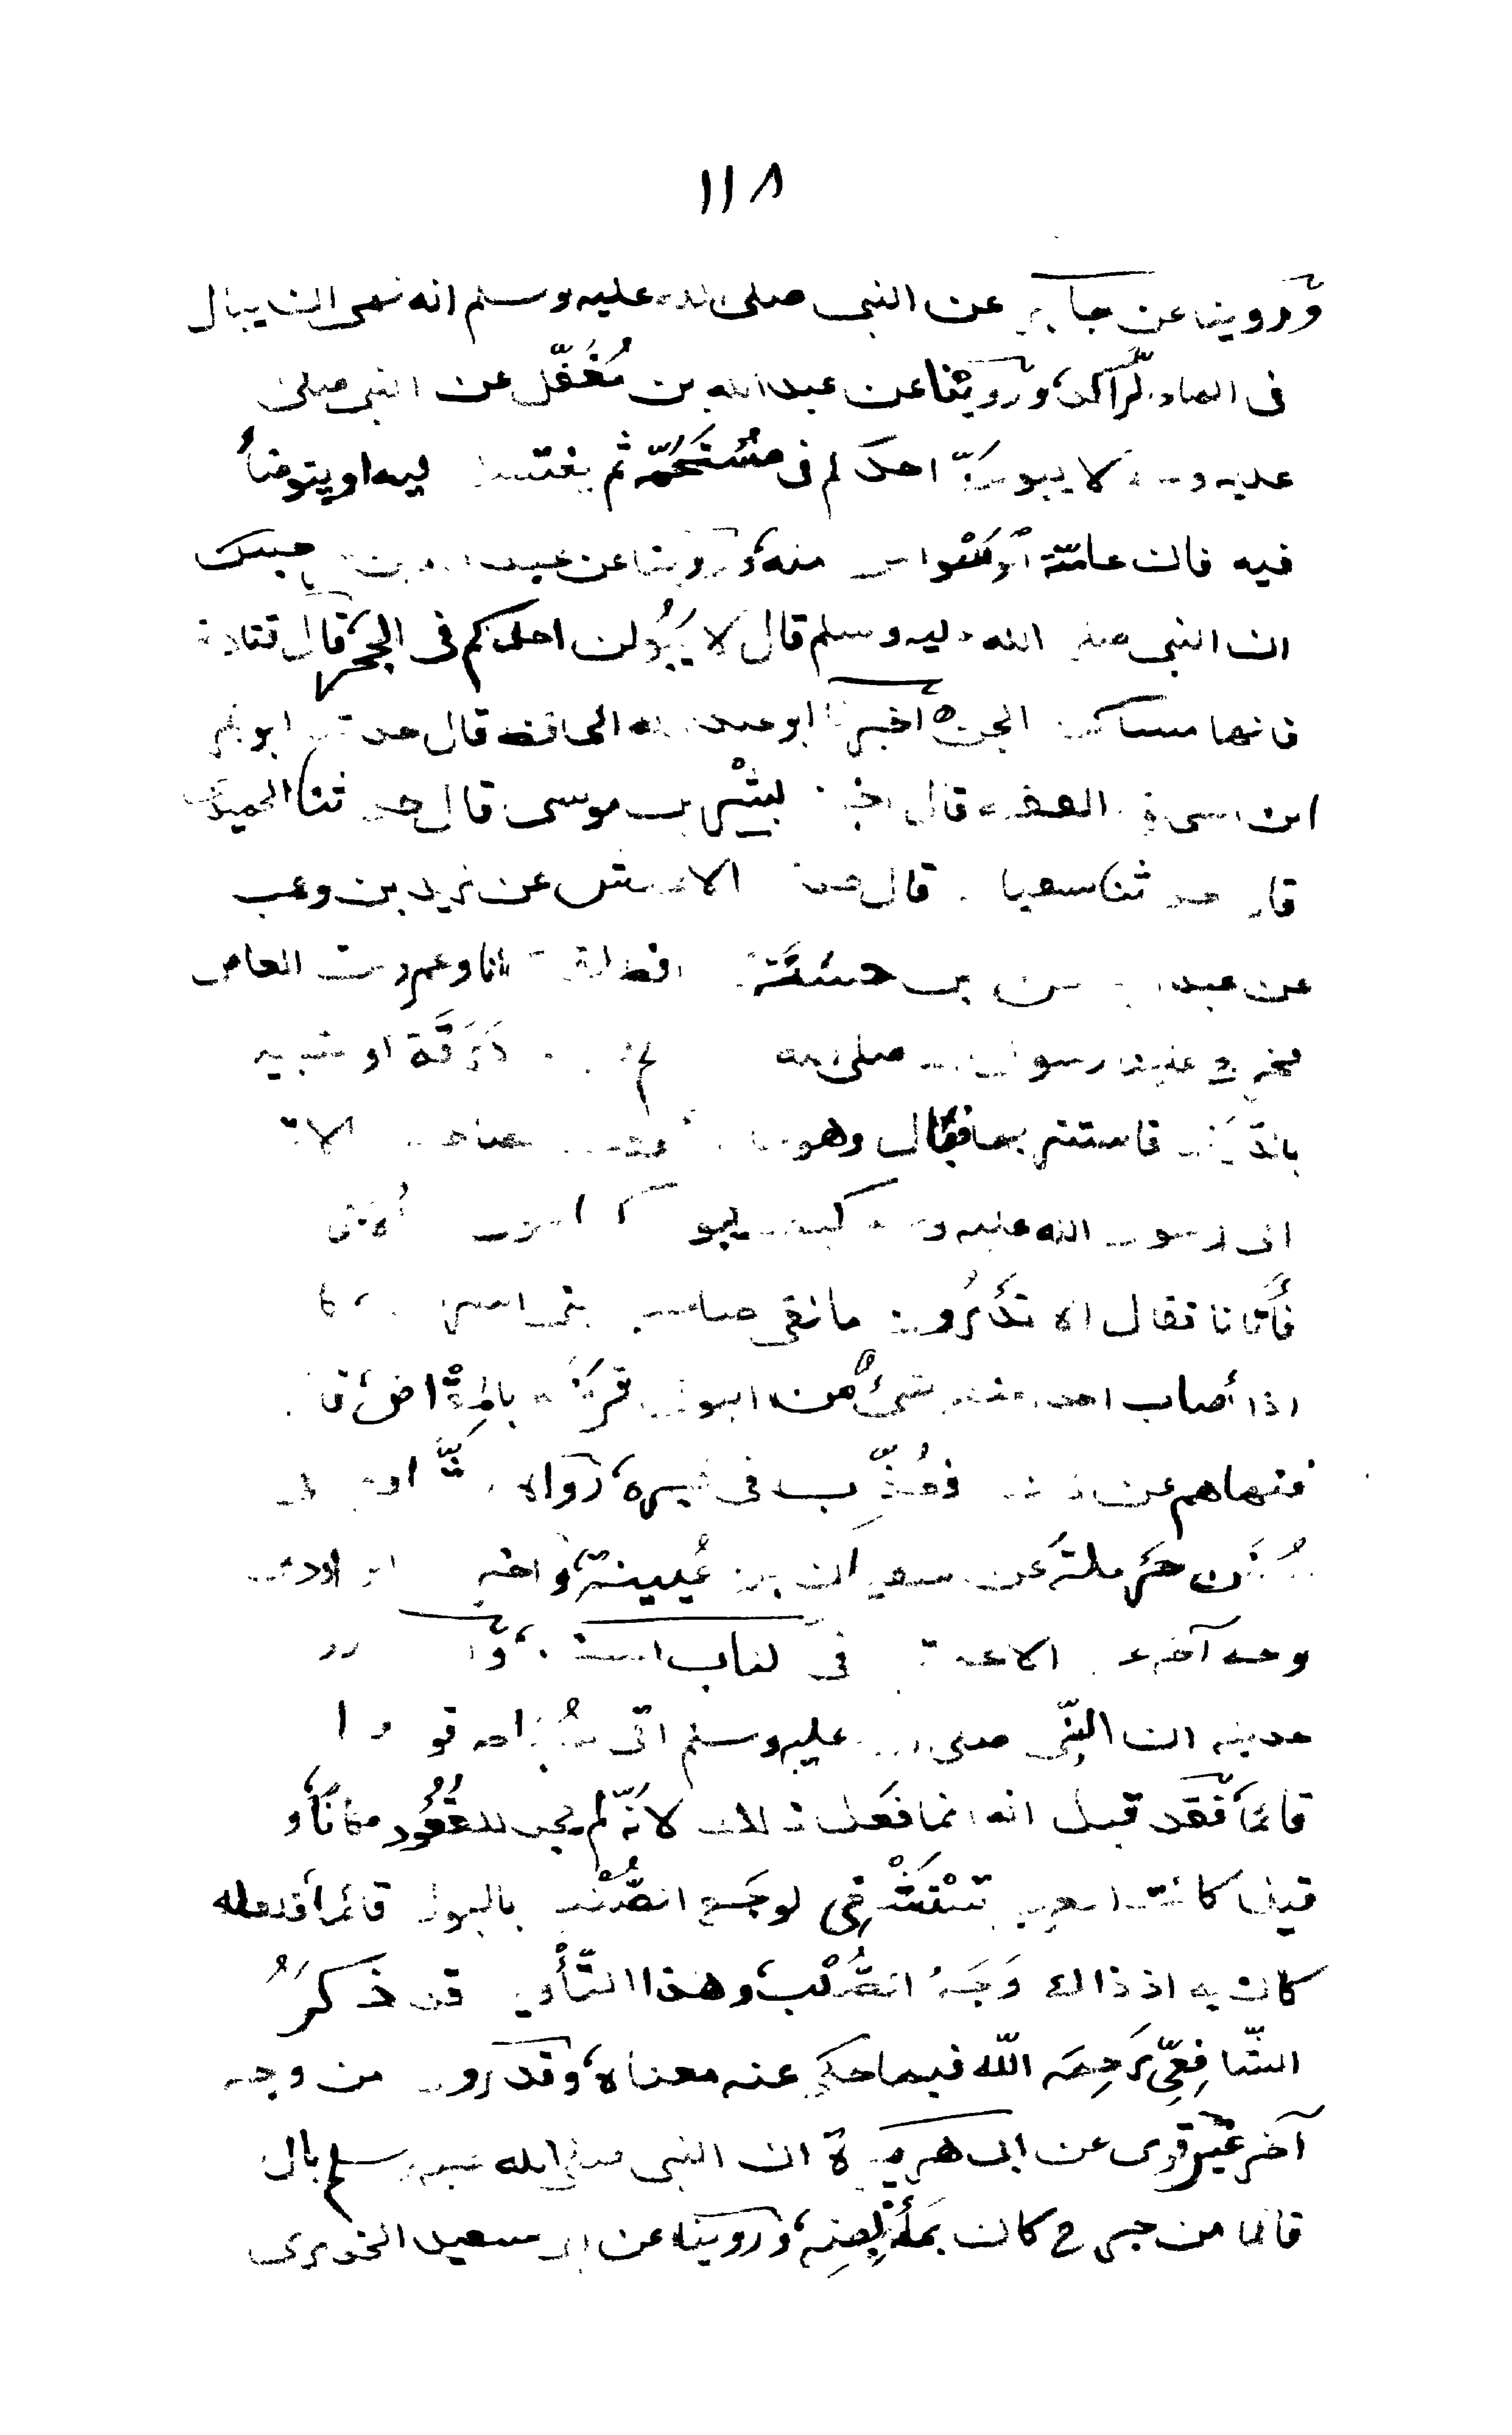 ١١٨
وروينا عن جابر عن النبى صلى الله عليه وسلم انه نهى ان يبال
فى الماء الرّاكد، وروينا عن عبد الله بن مُغَفَّل عن النبى صلى
عليه لا يبولنّ احدكم فى مُسْتَحَمّه ثم يغتسل فيه او يتوضأ
فيه فان عامّة الوَسْواس منه، وروينا عن عبد الله بن سرجس
ان النبى صلى الله عليه وسلم قال لا يَبُولن احدكم فى الجُحْر قال قتادة
فانها مساكن الجن، اخبرنا ابو عبد الله الحافظ قال حدثنا ابو بكر
ابن اسحاق الفقيه قال اخبرنا بِشْر بن موسى قال حدثنا الحميدى
قال حدثنا سفيان قال حدثنا الاعمش عن زيد بن وهب
عن عبد الرحمن بن حسنة انطلقت انا وعمرو بن العاص
فخرج علينا رسول الله صلى الله دَرَقَة او شبيه
بالدَّرَقة فاستتر بها فبال وهو جالس
الى رسول الله عليه كيف يبول
فأتانا فقال الا تدرُون ما لقى صاحب بنى اسرائيل، كان
اذا أصاب احدا منهم شىءٌ من البول قرضه بالمِقْراض، قال
فنهاهم عن ذلك فعُذِّب فى قبره، رواه الشّافعى فى
سُنَن حَرْملة عن سفيان بن عُيينة، واخرجه ابو داود من
وجه آخر عن الاعمش فى كتاب السنن، و
حديثه ان النّبِى صلى الله عليه وسلم اتى سُبَاطة قوم
قائمًا، فقد قيل انه انما فَعَل ذلك لانّه لم يجد للقُعُود مكانًا، و
قيل كانت العرب تَسْتَشْفِى لوجع الصُّلْب بالبول قائمًا فلعله
كان به اذ ذاك وَجَعُ الصُّلْب، وهذا التّأويل قد ذكرَهُ
الشّافِعِىّ رَحِمَه اللّه فيما حكى عنه معناه، وقد روى من وجه
آخر غير قوى عن ابى هريرة ان النبى صلى الله عليه وسلم بال
قائما من جرح كان بمَأْبِضِه، وروينا عن ابى سعيد الخدرى